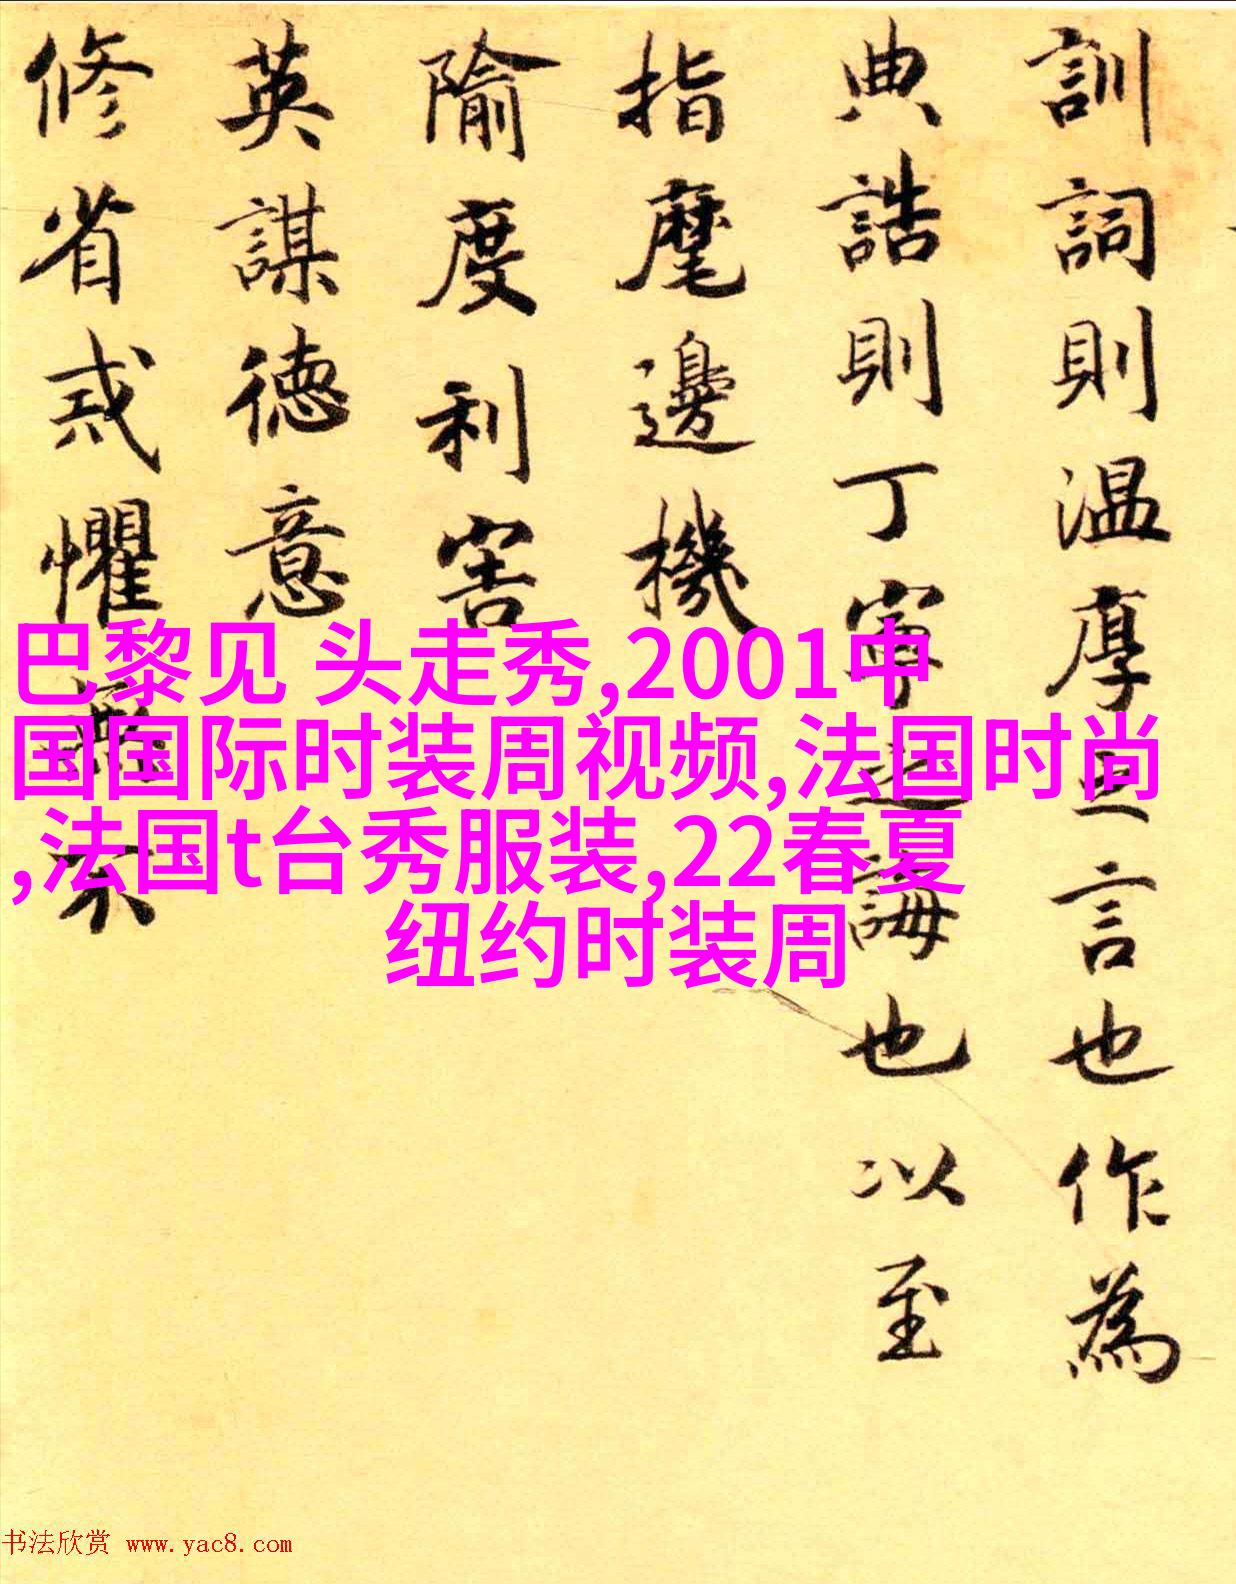 訓詞則温厚之言也作為
典誥則丁寧之誨也以至
指麾邊機
隃度利害
英謀德意
修省戒懼無不
巴黎见 头走秀,2001中
国国际时装周视频,法国时尚
,法国t台秀服装,22春夏
纽约时装周
书法欣赏 www.yac8.com